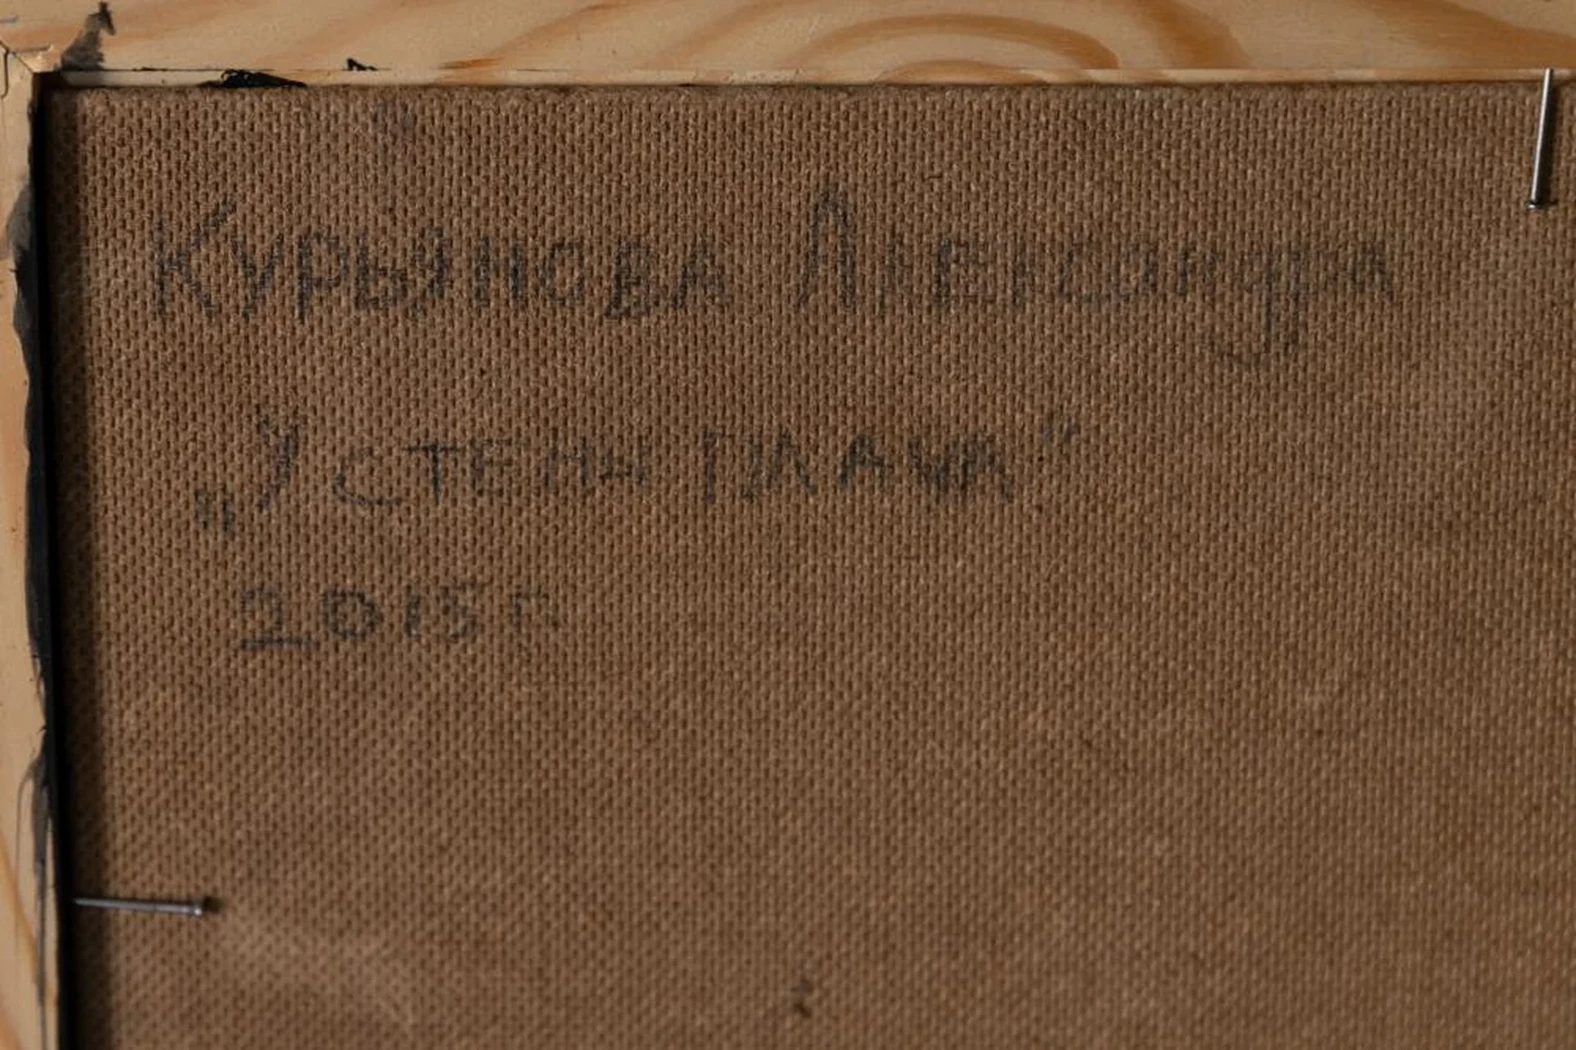 Курьянова Александра
„У стены плача"
2015 г.